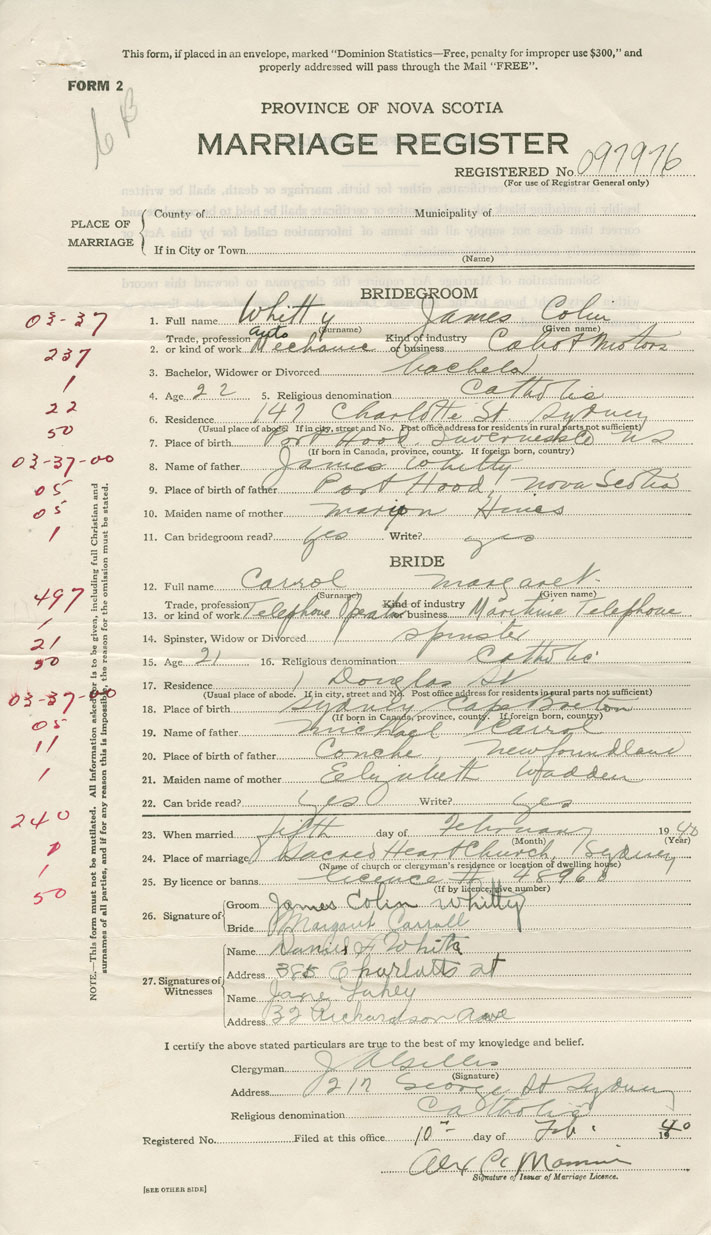 This form, if placed in an envelope, marked "Dominion Statistics—Free, penalty for improper use $300," and
properly addressed will pass through the Mail "FREE".
FORM 2
PROVINCE OF NOVA SCOTIA
MARRIAGE REGISTER
REGISTERED No. 097976
(For use of Registrar General only)
PLACE OF MARRIAGE
County of
Municipality of
If in City or Town
(Name)
BRIDEGROOM
03-37
1. Full name Whitty James Colin
(Surname) (Given name)
237
2. Trade, profession or kind of work auto Mechanic Kind of industry or business Cabot Motors
1
3. Bachelor, Widower or Divorced bachelor
22
4. Age 22 5. Religious denomination Catholic
50
6. Residence 147 Charlotte St Sydney
(Usual place of abode. If in city, street and No. Post office address for residents in rural parts not sufficient)
03-37-00
7. Place of birth Port Hood, Inverness Co NS
(If born in Canada, province, county. If foreign born, country)
8. Name of father James Whitty
05
9. Place of birth of father Port Hood, Nova Scotia
05
10. Maiden name of mother Marion Hines
1
11. Can bridegroom read? yes Write? yes
BRIDE
12. Full name Carrol Margaret
(Surname) (Given name)
497
13. Trade, profession or kind of work Telephone Operator Kind of industry or business Maritime Telephone
1
14. Spinster, Widow or Divorced spinster
21
15. Age 21 16. Religious denomination Catholic
50
17. Residence 1 Douglas St
(Usual place of abode. If in city, street and No. Post office address for residents in rural parts not sufficient)
03-37-00
18. Place of birth Sydney Cape Breton
(If born in Canada, province, county. If foreign born, country)
05
19. Name of father Michael Karrol
11
20. Place of birth of father Conche, Newfoundland
1
21. Maiden name of mother Elizabeth Wadden
22. Can bride read? yes Write? yes
240
23. When married fifth day of February 1940
(Month) (Year)
24. Place of marriage Sacred Heart Church, Sydney
(Name of church or clergyman's residence or location of dwelling house)
1
25. By licence or banns Licence #
(If by licence, give number)
50
26. Signature of Groom James Colin Whitty
Bride Margaret Carroll
27. Signatures of Witnesses
Name
Address 385 Charlotte St
Name Jane Lahey
Address 32 Richardson Ave
I certify the above stated particulars are true to the best of my knowledge and belief.
Clergyman J A Gillis
(Signature)
Address 217 George St Sydney
Religious denomination Catholic
Registered No. Filed at this office 10 day of Feb. 1940
Alex
Signature of Issuer of Marriage Licence.
[SEE OTHER SIDE]
NOTE.—This form must not be mutilated. All information asked for is to be given, including full Christian and
surnames of all parties, and if for any reason this is impossible, the reason for the omission must be stated.